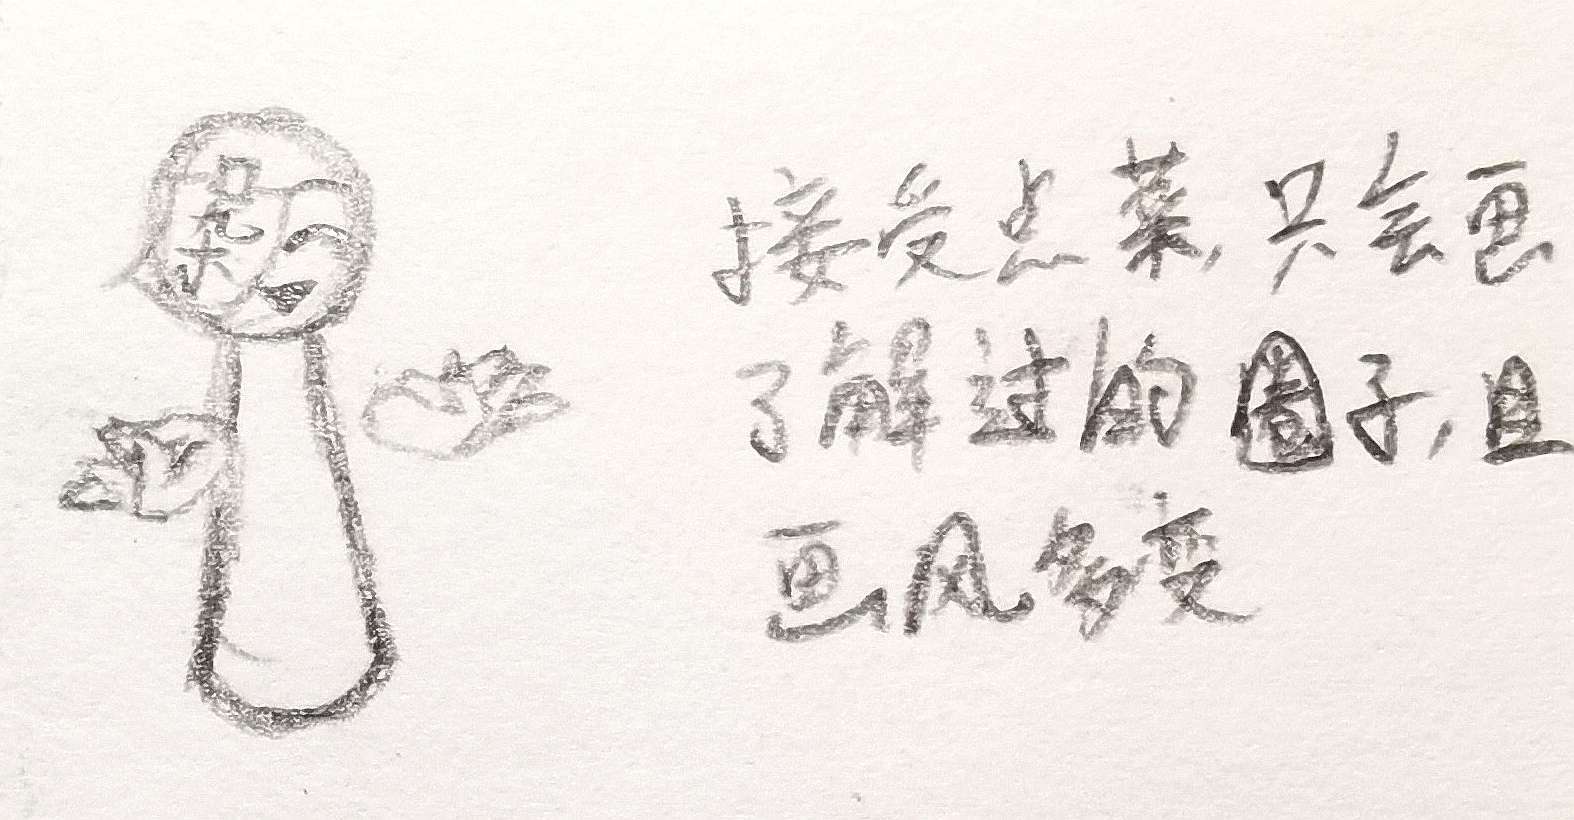 接受点菜,只会画
了解过的圈子,且
画风多变